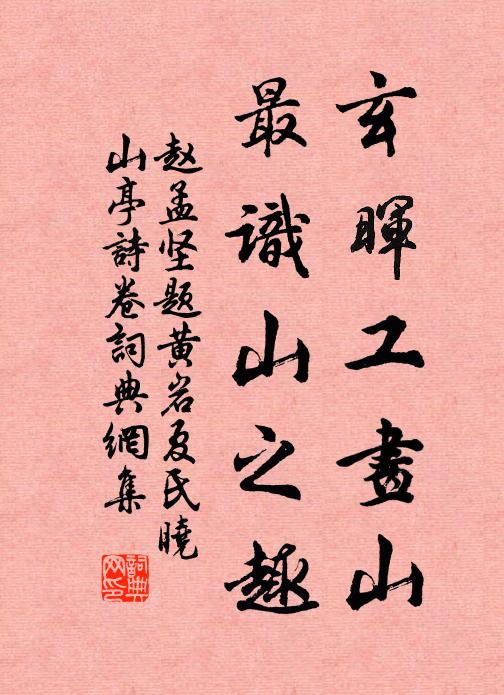 玄暉工畫山
最識山之趣
赵孟坚题黄岩夏氏曉
山亭詩卷詞典網集
詞典网印